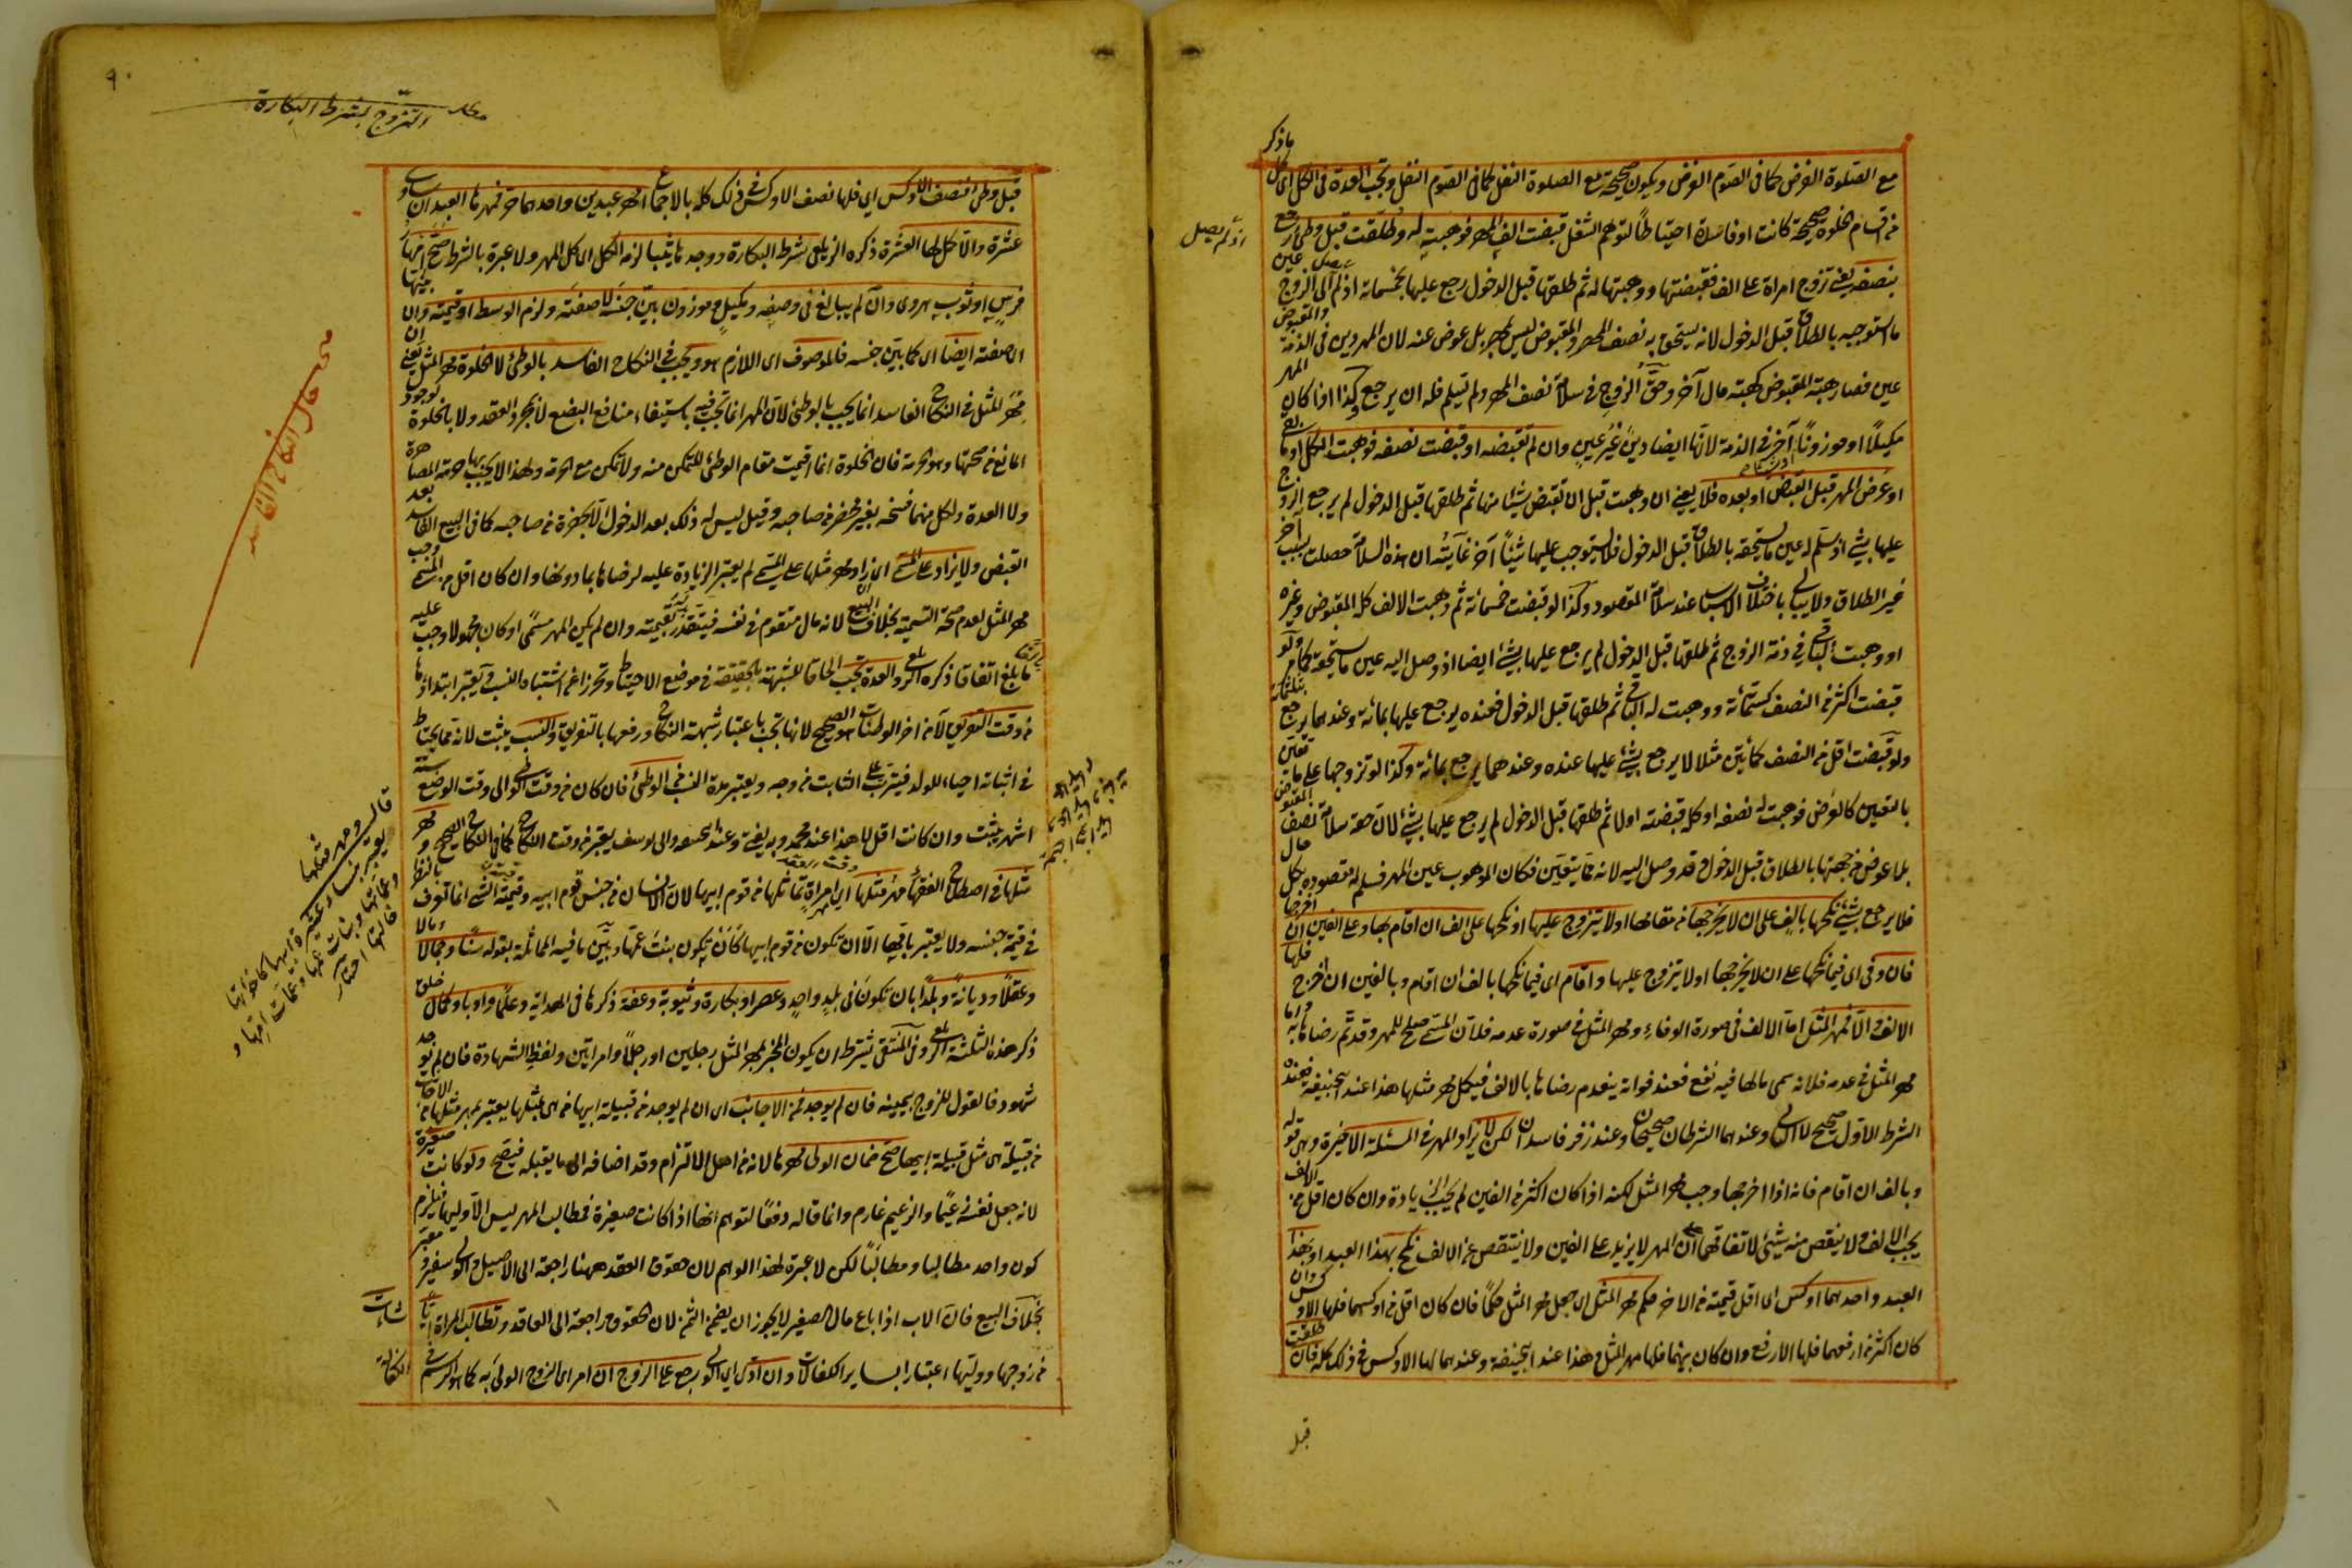 مع الصلوة الفرض كما في الصوم الفرض ويكون صحيحة مع الصلوة النفل كما في الصوم النفل وتجب العدة في الكل اى كل ما ذكر
من اقسام الخلوة صحيحة كانت او فاسدة احتياطا لتوهم الشغل قبضت الف المهر فوهبته له وطلقت قبل وطئ رجع
بنصفه يعني تزوج امراة على الف فقبضتها ووهبتها له ثم طلقها قبل الدخول رجع عليها بخمسمائة اذ لم يصل الى الزوج عين
ما استوجبه بالطلاق قبل الدخول لانه يستحق به نصف المهر والمقبوض ليس بمهر بل عوض عنه لان المهر دين في الذمة والمقبوض
عين فصار هبة المقبوض كهبة مال آخر وحق الزوج في سلامة نصف المهر ولم تسلم فله ان يرجع وكذا اذا كان المهر
مكيلا او موزونا آخر في الذمة لانها ايضا دين غير عين وان لم تقبضه او قبضت نصفه فوهبت الكل او ما بقى
او عرض المهر قبل القبض او بعده فلا يعني ان وهبت قبل ان تقبض شيئا منها ثم طلقها قبل الدخول لم يرجع الزوج
عليها بشئ اذ سلم له عين ما يستحقه بالطلاق قبل الدخول فلا يستوجب عليها شيئا آخر غايته ان هذه السلامة حصلت بسبب آخر
غير الطلاق ولا يبالى باختلاف الاسباب عند سلامة المقصود وكذا لو قبضت خمسمائة ثم وهبت الالف كله المقبوض وغيره
او وهبت الباقي في ذمة الزوج ثم طلقها قبل الدخول لم يرجع عليها بشئ ايضا اذ وصل اليه عين ما يستحقه كما مر ولو
قبضت اكثر من النصف كستمائة ووهبت له الباقي ثم طلقها قبل الدخول فعنده يرجع عليها بمائة وعندهما يرجع بثلثمائة
ولو قبضت اقل من النصف كمائتين مثلا لا يرجع بشئ عليها عنده وعندهما يرجع بمائة وكذا لو تزوجها على ما تعين
بالتعيين كالعرض فوهبت له نصفه او كله قبضته اولا ثم طلقها قبل الدخول لم يرجع عليها بشئ لان حقه سلامة نصف المقبوض
بلا عوض من جهتها بالطلاق قبل الدخول وقد وصل اليه لانه مما يتعين فكان الموهوب عين المهر فسلم له مقصوده بكل حال
فلا يرجع بشئ نكحها بالف على ان لا يخرجها من مقامها او لا يتزوج عليها او نكحها على الف ان اقام بها وعلى الفين ان اخرجها
فان وفى اى فيما نكحها على ان لا يخرجها او لا يتزوج عليها واقام اى فيما نكحها بالف ان اقام وبالفين ان اخرج فلها
الالف والا فمهر المثل اما الالف في صورة الوفاء ومهر المثل في صورة عدمه فلان المسمى صلح للمهر وقد تم رضاها به واما
مهر المثل في عدمه فلانه سمى ما لها فيه نفع فعند فواته ينعدم رضاها بالالف فيكمل مهر مثلها هذا عند ابي حنيفة فعنده
الشرط الاول صحيح لا الثاني وعندهما الشرطان صحيحان وعند زفر فاسدان لكن لا يزاد المهر في المسئلة الاخيرة وهى قوله
وبالف ان اقام فانه اذا اخرجها وجب مهر المثل لكنه اذا كان اكثر من الفين لم يجب الزيادة وان كان اقل من الالف
يجب الالف ولا ينقص منه شئ لاتفاقهما على ان المهر لا يزيد على الفين ولا ينتقص عن الالف نكح بهذا العبد او بهذا
العبد واحدهما اوكس اى اقل قيمة من الآخر حكم مهر المثل اى جعل مهر المثل حكما فان كان اقل من اوكسهما فلها الاوكس وان
كان اكثر من ارفعهما فلها الارفع وان كان بينهما فلها مهر المثل هذا عند ابي حنيفة وعندهما لها الاوكس في ذلك كله فان طلقت
قبل
اذ لم يصل
٩٠
مطلب التزوج بشرط البكارة
قبل وطئ فنصف الاوكس اى فلها نصف الاوكس في ذلك كله بالاجماع امهر عبدين واحدهما حر فمهرها العبد ان ساوى
عشرة والا كمل لها العشرة ذكره الزيلعي شرط البكارة ووجدها ثيبا لزمه الكل اى كل المهر ولا عبرة بالشرط صح امهارها
فرس او ثوب هروى وان لم يبالغ في وصفه ومكيل وموزون بين جنسه لا صفته ولزم الوسط او قيمته وان بينها
اى صفته ايضا اى كما بين جنسه فالموصوف اى اللازم هو ويجب في النكاح الفاسد بالوطئ لا الخلوة مهر المثل يعني ان
مهر المثل في النكاح الفاسد انما يجب بالوطئ لان المهر انما يجب فيه باستيفاء منافع البضع لا بمجرد العقد ولا بالخلوة لوجود
المانع من صحتها وهو الحرمة فان الخلوة انما اقيمت مقام الوطئ للتمكن منه ولا تمكن مع الحرمة ولهذا لا يجب بها حرمة المصاهرة
ولا العدة ولكل منهما فسخه بغير محضر من صاحبه وقيل ليس له ذلك بعد الدخول الا بحضرة من صاحبه كما في البيع الفاسد بعد
القبض ولا يزاد على المسمى اى ان زاد مهر مثلها على المسمى لم يعتبر الزيادة عليه لرضاها بما دونها وان كان اقل من المسمى وجب
مهر المثل لعدم صحة التسمية بخلاف البيع لانه مال متقوم في نفسه فيتقدر بقيمته وان لم يكن المهر مسمى او كان مجهولا وجب
ما بلغ اتفاقا ذكره الزيلعي والعدة تجب الحاقا للشبهة بالحقيقة في موضع الاحتياط وتحرزا عن اشتباه النسب ويعتبر ابتداؤها
من وقت التفريق لا من آخر الوطئات هو الصحيح لانها تجب باعتبار شبهة النكاح ورفعها بالتفريق والنسب يثبت لانه مما يحتاط
في اثباته احياء للولد فيترتب على الثابت من وجه ويعتبر مدة النسب من الوطئ فان كان من وقت الوطئ الى وقت الوضع ستة
اشهر يثبت وان كانت اقل لا هذا عند محمد وبه يفتى وعند ابي حنيفة وابى يوسف يعتبر من وقت النكاح كما في النكاح الصحيح ومهر
مثلها في اصطلاح الفقهاء مهر مثلها اى مهر امراة تماثلها من قوم ابيها لان الانسان من جنس قوم ابيه وقيمة الشئ انما تعرف بالنظر
في قيمة جنسه ولا يعتبر باقيها الا ان تكون من قوم ابيها كأن تكون بنت عمها وبين ما فيه المماثلة بقوله سنا وجمالا ومالا
وعقلا وديانة وبلدا بان تكونا في بلد واحد وعصرا وبكارة وثيوبة وعفة ذكرها في الهداية وعلما وادبا وكمال خلق
ذكر هذه الثلثة الزيلعي وفي المنتقى يشترط ان يكون المخبر بمهر المثل رجلين او رجلا وامراتين ولفظ الشهادة فان لم يوجد
شهود فالقول للزوج بيمينه فان لم يوجد فمن الاجانب اى ان لم يوجد من قبيلة ابيها من هى مثلها يعتبر بمهر مثلها من الاجانب
من قبيلة هى مثل قبيلة ابيها صح ضمان الولى مهرها لانه من اهل الالتزام وقد اضافه الى ما يقبله فيصح ولو كانت صغيرة
لانه جعل نفسه زعيما والزعيم غارم وانما قاله دفعا لتوهم انها اذا كانت صغيرة فمطالب المهر ليس الا وليها فيلزم
كون واحد مطالبا ومطالبا لكن لا عبرة لهذا الوهم لان حقوق العقد ههنا راجعة الى الاصيل والولى سفير ومعبر
بخلاف البيع فان الاب اذا باع مال الصغير لا يجوز ان يضمن الثمن لان الحقوق راجعة الى العاقد وتطالب المراة ايا شاءت
من زوجها ووليها اعتبارا بسائر الكفالات وان ادى اى الولى رجع على الزوج ان امر اى الزوج الولى به كما هو الرسم في الكفالة
قال ومهر مثلها
يعتبر بنساء عشيرة ابيها كاخواتها
وعماتها وبنات عمها